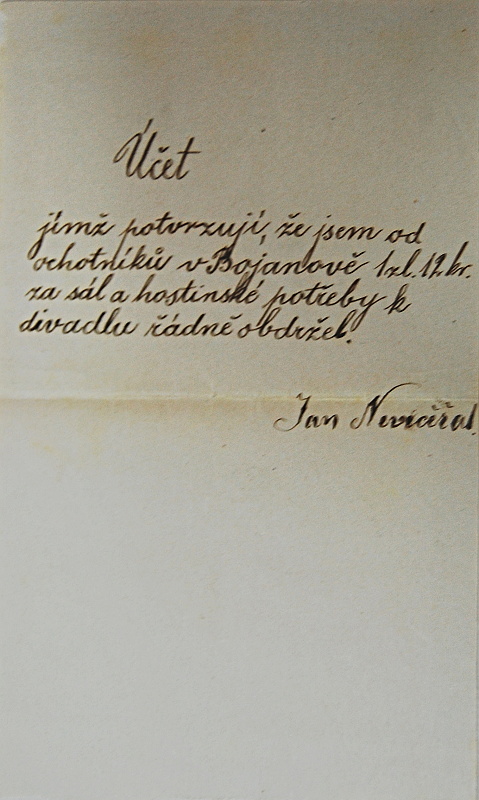 Účet
jímž potvrzuji, že jsem od
ochotníků v Bojanově 1zl. 12 kr.
za sál a hostinské potřeby k
divadlu řádně obdržel.
Jan